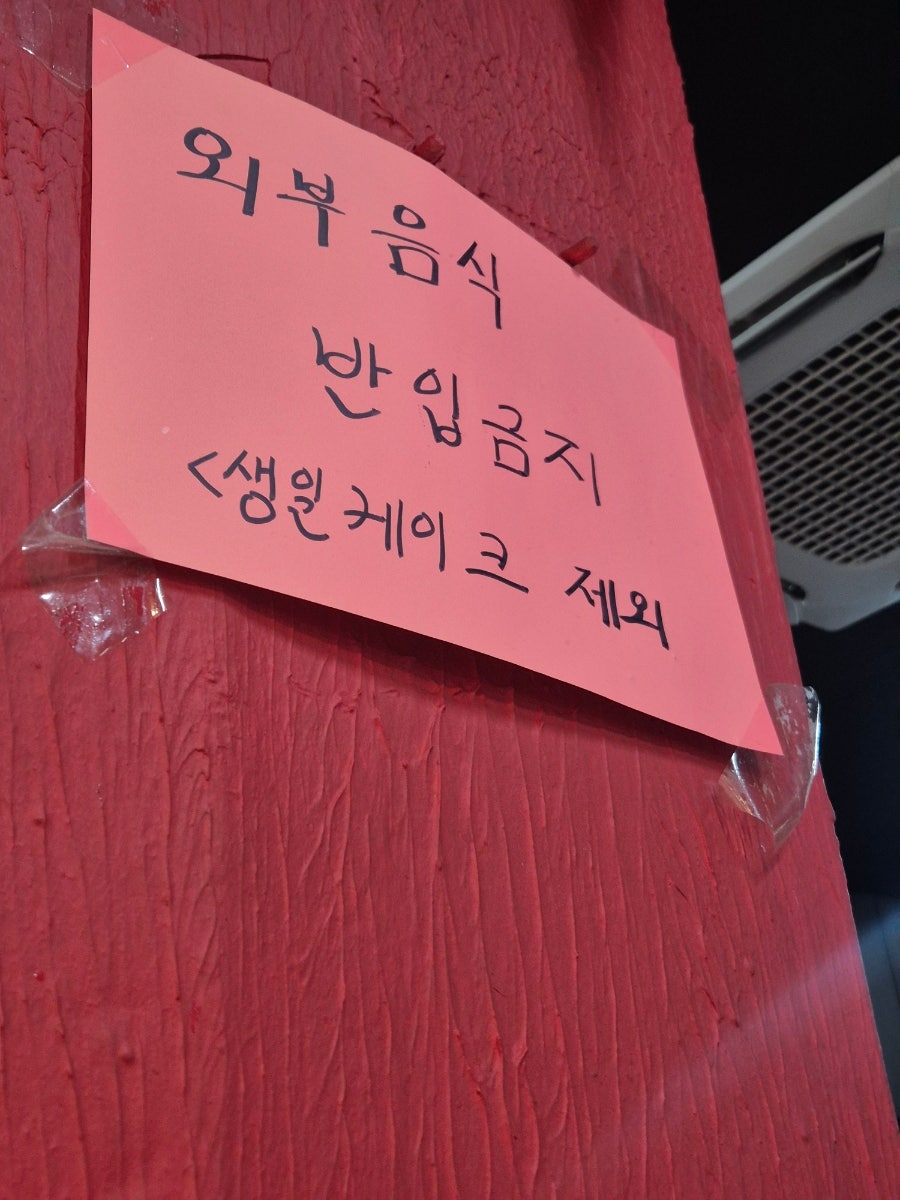 외부 음식
반입금지
<생일케이크 제외